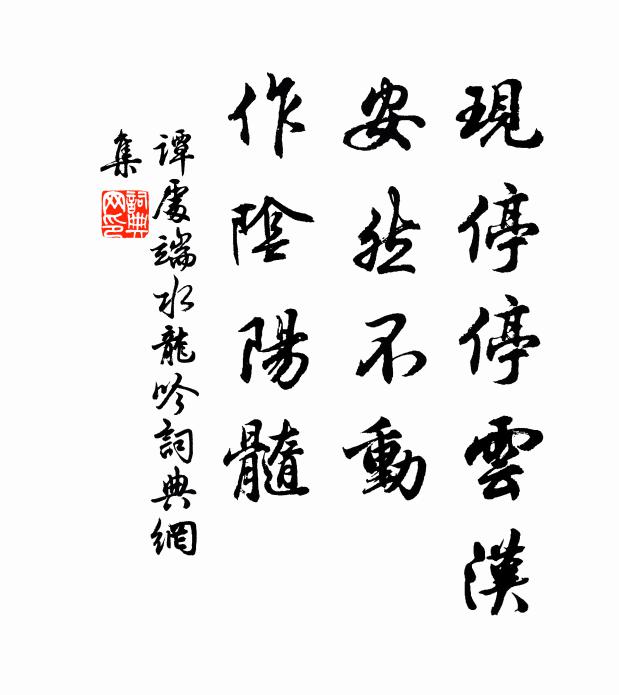 現停停雲漢
安然不動
作陰陽髓
譚處端水龍吟詞典網
集
詞典
网印